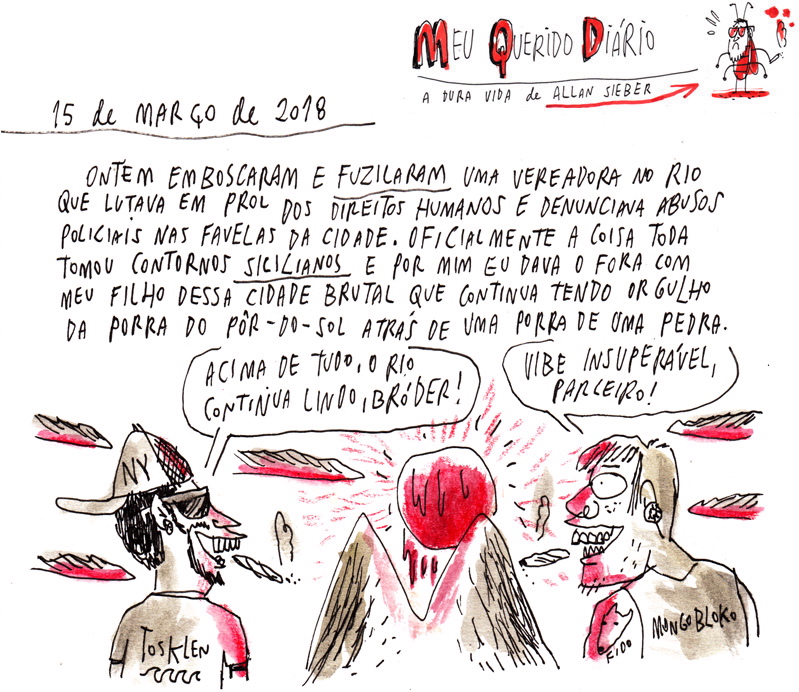 MEU QUERIDO DIÁRIO
A DURA VIDA de ALLAN SIEBER
15 de MARÇO de 2018
ONTEM EMBOSCARAM E FUZILARAM UMA VEREADORA NO RIO
QUE LUTAVA EM PROL DOS DIREITOS HUMANOS E DENUNCIAVA ABUSOS
POLICIAIS NAS FAVELAS DA CIDADE. OFICIALMENTE A COISA TODA
TOMOU CONTORNOS SICILIANOS E POR MIM EU DAVA O FORA COM
MEU FILHO DESSA CIDADE BRUTAL QUE CONTINUA TENDO ORGULHO
DA PORRA DO PÔR-DO-SOL ATRÁS DE UMA PORRA DE UMA PEDRA.
ACIMA DE TUDO, O RIO
CONTINUA LINDO, BRÓDER!
VIBE INSUPERÁVEL,
PARCEIRO!
NY
TOSKLEN
FIDO
MONGOBLOKO